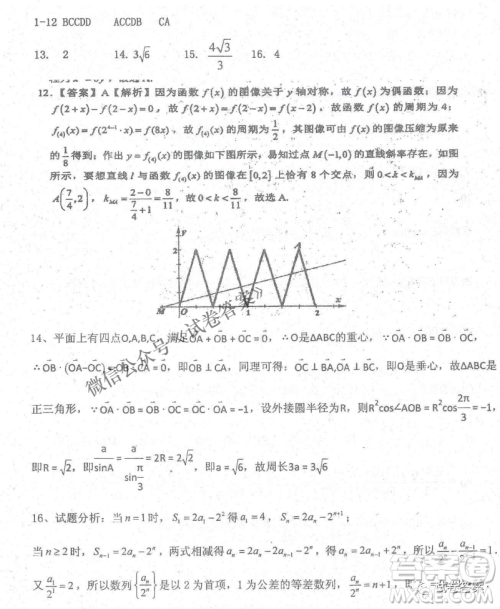 1-12 BCCDD ACCDB CA
13. 2 14. 3√6 15. 4√3/3 16. 4
12.【答案】A【解析】因为函数 f(x) 的图像关于 y 轴对称，故 f(x) 为偶函数；因为
f(2+x)-f(2-x)=0，故 f(2+x)=f(2-x)=f(x-2)。故函数 f(x) 的周期为 4；
f₍₄₎(x)=f(2⁴⁻¹·x)=f(8x)，故 f(x) 的周期为 1/2，其图像可由 f(x) 的图像压缩为原来
的 1/8 得到；作出 y=f₍₄₎(x) 的图像如下图所示，易知过点 M(-1,0) 的直线斜率存在，如图
所示，要想直线 l 与函数 f₍₄₎(x) 的图像在 [0,2] 上恰有 8 个交点，则 0<k<k_MA，因为
A(7/4,2)，k_MA=(2-0)/(7/4+1)=8/11，故 0<k<8/11，故选 A.
y
2
M O 1 2 x
微信公众号《试卷答案》
14、平面上有四点O,A,B,C，满足OA⃗+OB⃗+OC⃗=0⃗，∴O是ΔABC的重心，∵OA⃗·OB⃗=OB⃗·OC⃗，
∴OB⃗·(OA⃗-OC⃗)=OB⃗·CA⃗=0，即OB⊥CA，同理可得：OC⊥BA,OA⊥BC，即O是垂心，故ΔABC是
正三角形，∵OA⃗·OB⃗=OB⃗·OC⃗=OC⃗·OA⃗=-1，设外接圆半径为R，则R²cos∠AOB=R²cos 2π/3=-1，
即R=√2，即 a/sinA=a/sin(π/3)=2R=2√2，即a=√6，故周长3a=3√6
16、试题分析：当 n=1 时，S₁=2a₁-2² 得 a₁=4，Sₙ=2aₙ-2ⁿ⁺¹；
当 n≥2 时，Sₙ₋₁=2aₙ₋₁-2ⁿ，两式相减得 aₙ=2aₙ-2aₙ₋₁-2ⁿ，得 aₙ=2aₙ₋₁+2ⁿ，所以
又 a₁/2¹=2，所以数列{aₙ/2ⁿ}是以 2 为首项，1 为公差的等差数列，aₙ/2ⁿ=n+1，即
答案圈
MXQE.COM